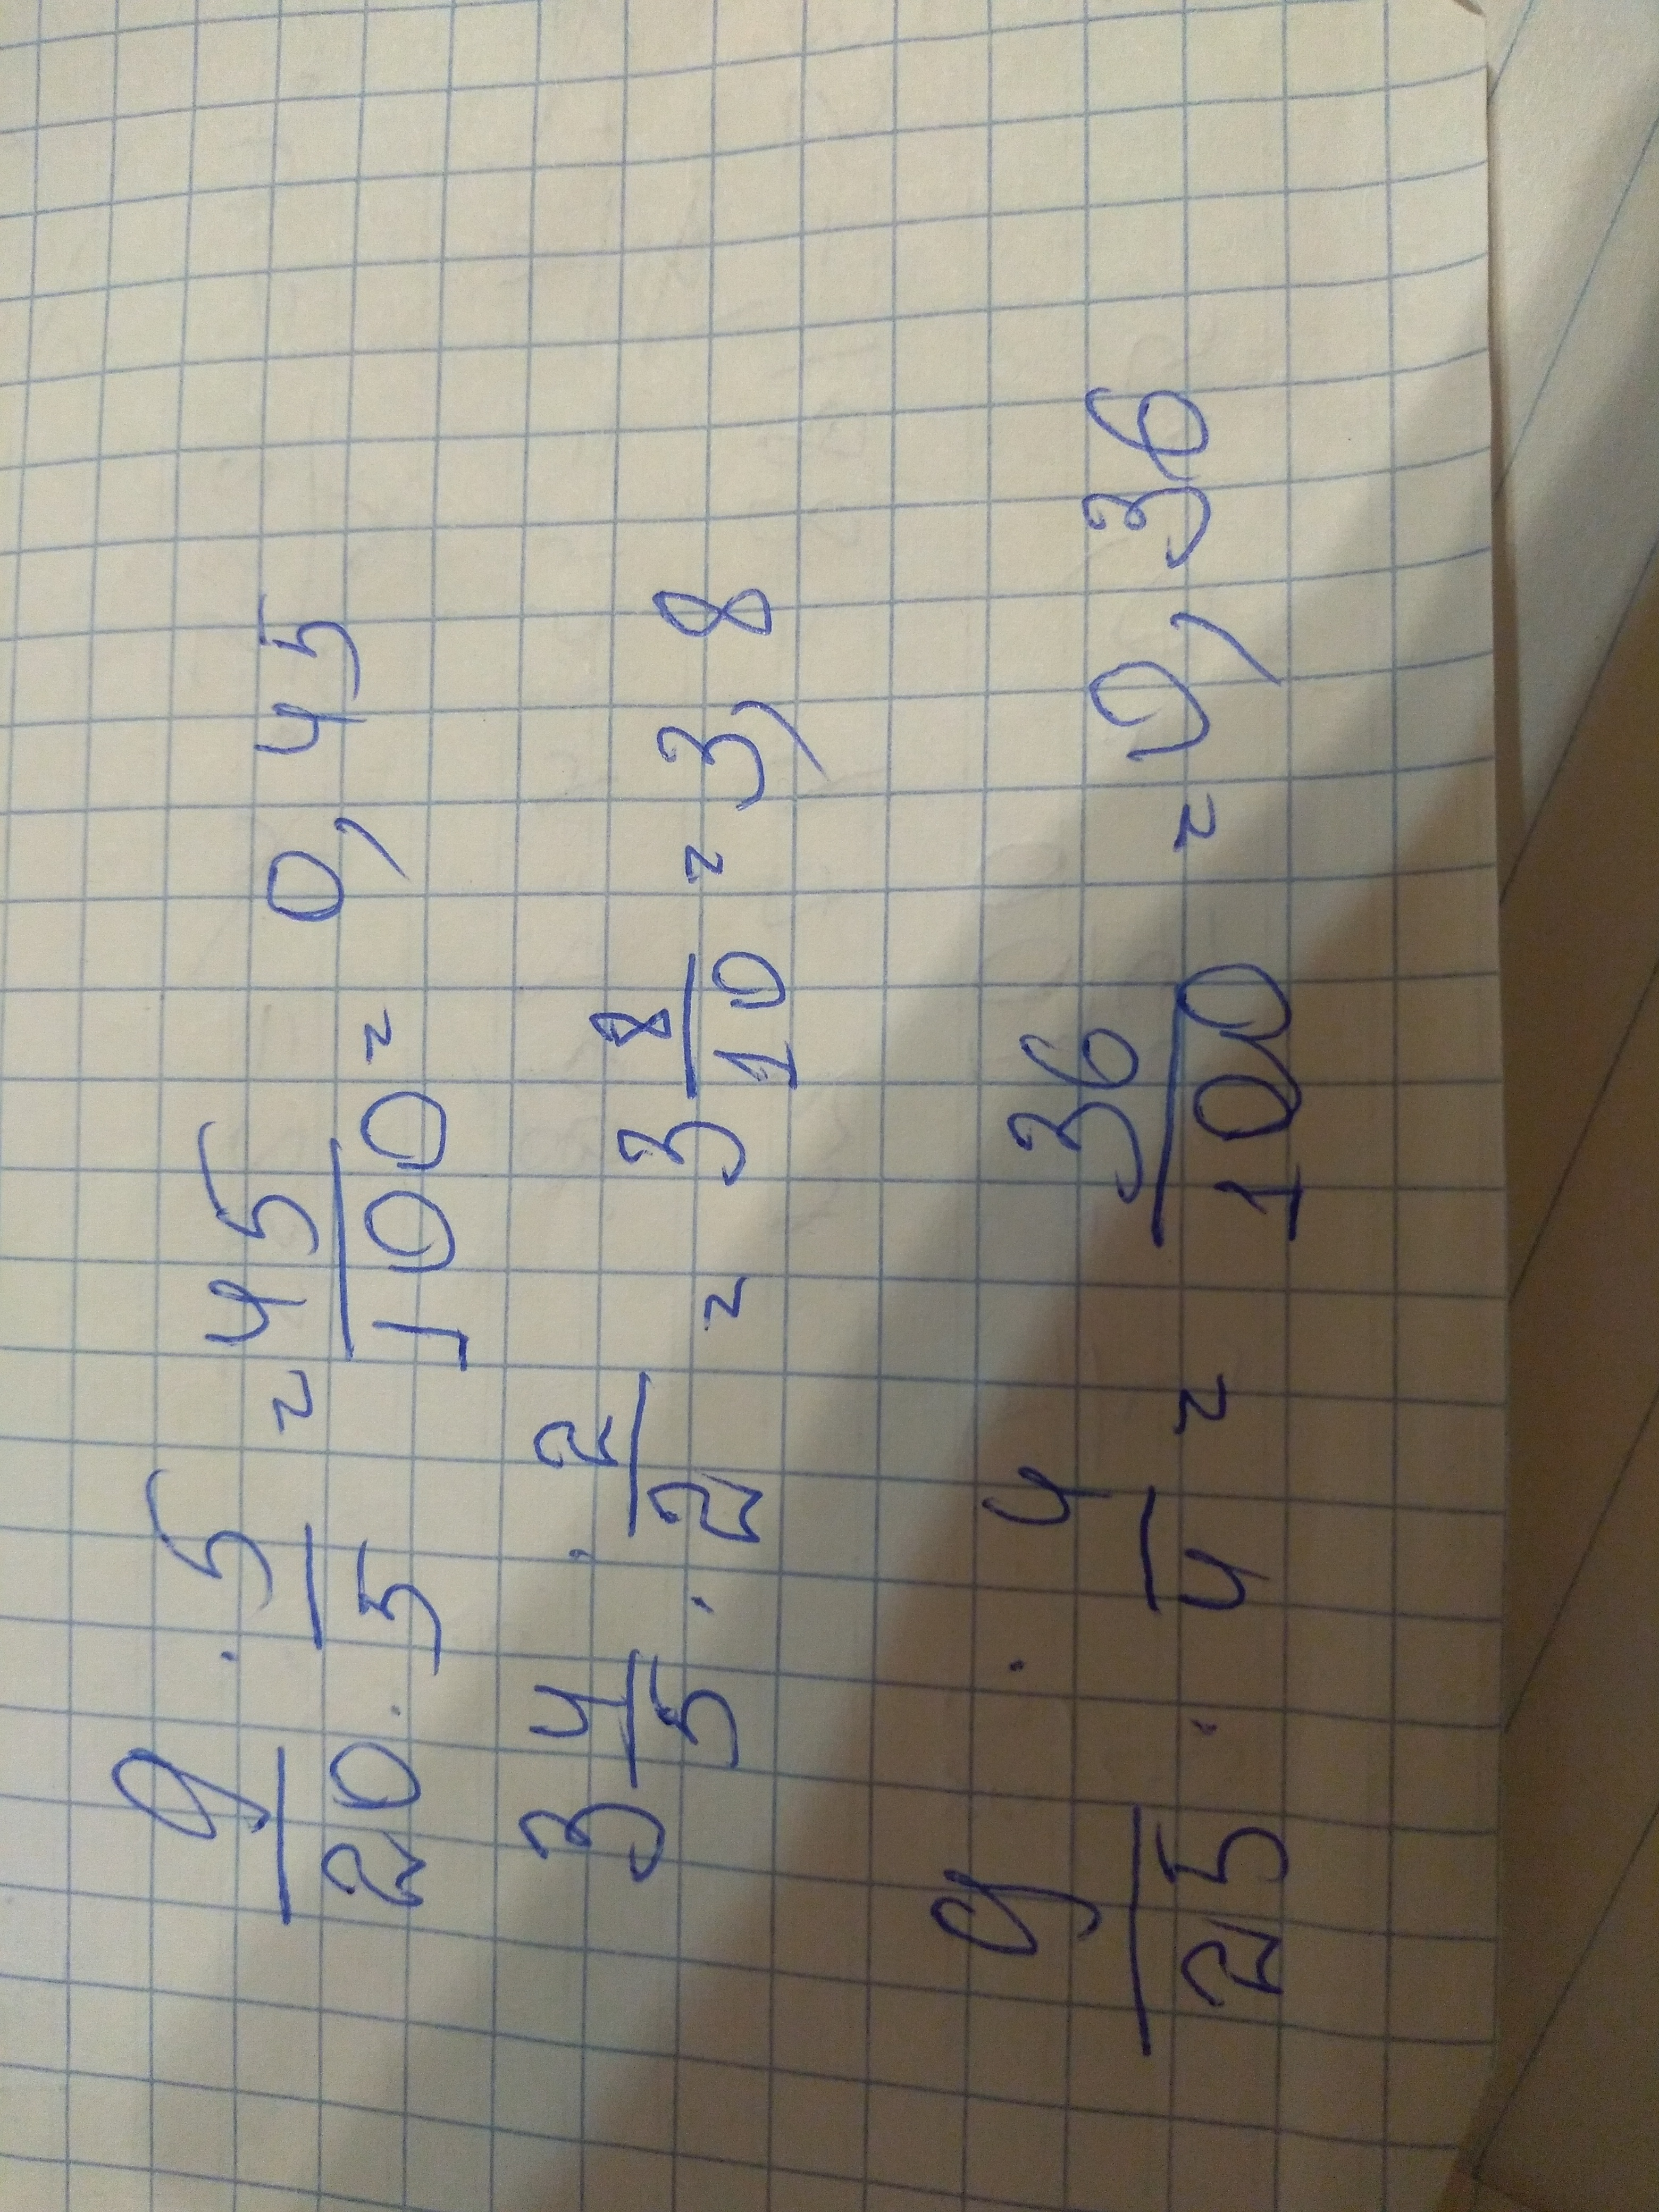 9/20 · 5/5 = 45/100 = 0,45
3 4/5 · 2/2 = 3 8/10 = 3,8
9/25 · 4/4 = 36/100 = 0,36